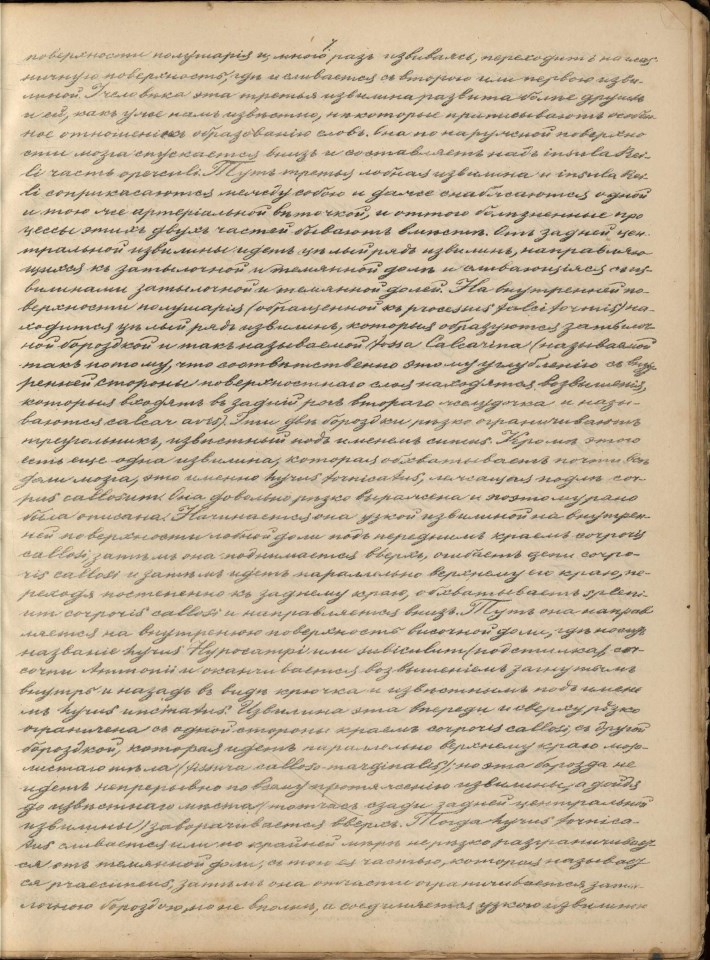 7
поверхности полушарія и, много разъ извиваясь, переходитъ на глаз-
ничную поверхность, гдѣ и сливается съ второю или первою изви-
линой. У человѣка эта третья извилина развита болѣе другихъ
и ей, какъ уже намъ извѣстно, нѣкоторые приписываютъ особен-
ное отношеніе къ образованію словъ. Она по наружной поверхно
сти мозга спускается внизъ и составляетъ надъ insula Rei-
li часть operculi. Тутъ третья лобная извилина и insula Rei-
li соприкасаются между собою и даже снабжаются одной
и тою же артеріальной вѣточкой, и оттого болѣзненные про
цессы этихъ двухъ частей бываютъ вмѣстѣ. Отъ задней цен-
тральной извилины идетъ цѣлый рядъ извилинъ, направляю
щихся къ затылочной и темянной долѣ и сливающіяся съ из-
вилинами затылочной и темянной долей. На внутренней по-
верхности полушарія (обращенной къ processus falciformis) на-
ходится цѣлый рядъ извилинъ, которыя образуются затылоч
ной бороздкой и такъ называемой fossa Calcarina (называемой
такъ потому, что соотвѣтственно этому углубленію съ внут
ренней стороны поверхностнаго слоя находятся возвышенія,
которыя входятъ въ задній рогъ втораго желудочка и назы-
ваются calcar avis). Эти двѣ бороздки рѣзко ограничиваютъ
треугольникъ, извѣстный подъ именемъ cuneus. Кромѣ этого
есть еще одна извилина, которая обхватываетъ почти всѣ
доли мозга, это именно hyrus fornicatus, лежащая подлѣ cor-
pus callosum. Она довольно рѣзко выражена и поэтому рано
была описана. Начинается она узкой извилиной на внутрен-
ней поверхности лобной доли подъ переднимъ краемъ corporis
callosi, затѣмъ она поднимается вверхъ, огибаетъ genu corpo-
ris callosi и затѣмъ идетъ параллельно верхнему его краю, пе-
реходя постепенно къ заднему краю, обхватываетъ spleni-
um corporis callosi и направляется внизъ. Тутъ она направ
ляется на внутреннюю поверхность височной доли, гдѣ носитъ
названіе hyrus Hypocampi или subiculum (подстилка) cor-
совпи Ammonii и оканчивается возвышеніемъ загнутымъ
внутрь и назадъ въ видѣ крючка и извѣстнымъ подъ имене
мъ hyrus uncinatus. Извилина эта впереди и сверху рѣзко
ограничена съ одной стороны краемъ corporis callosi, съ другой
бороздкой, которая идетъ параллельно верхнему краю мозо-
листаго тѣла (fissura calloso-marginalis); но эта борозда не
идетъ непрерывно по всему протяженію извилины, а дойдя
до извѣстнаго мѣста (тотчасъ сзади задней центральной
извилины) заворачивается вверхъ. Тогда hyrus fornica-
tus сливается или по крайней мѣрѣ не рѣзко разграничивает
ся отъ темянной доли, съ тою ея частью, которая называет
ся praecuneus, затѣмъ она отчасти ограничивается заты-
лочною бороздою, но не вполнѣ, и соединяется узкою извилиною